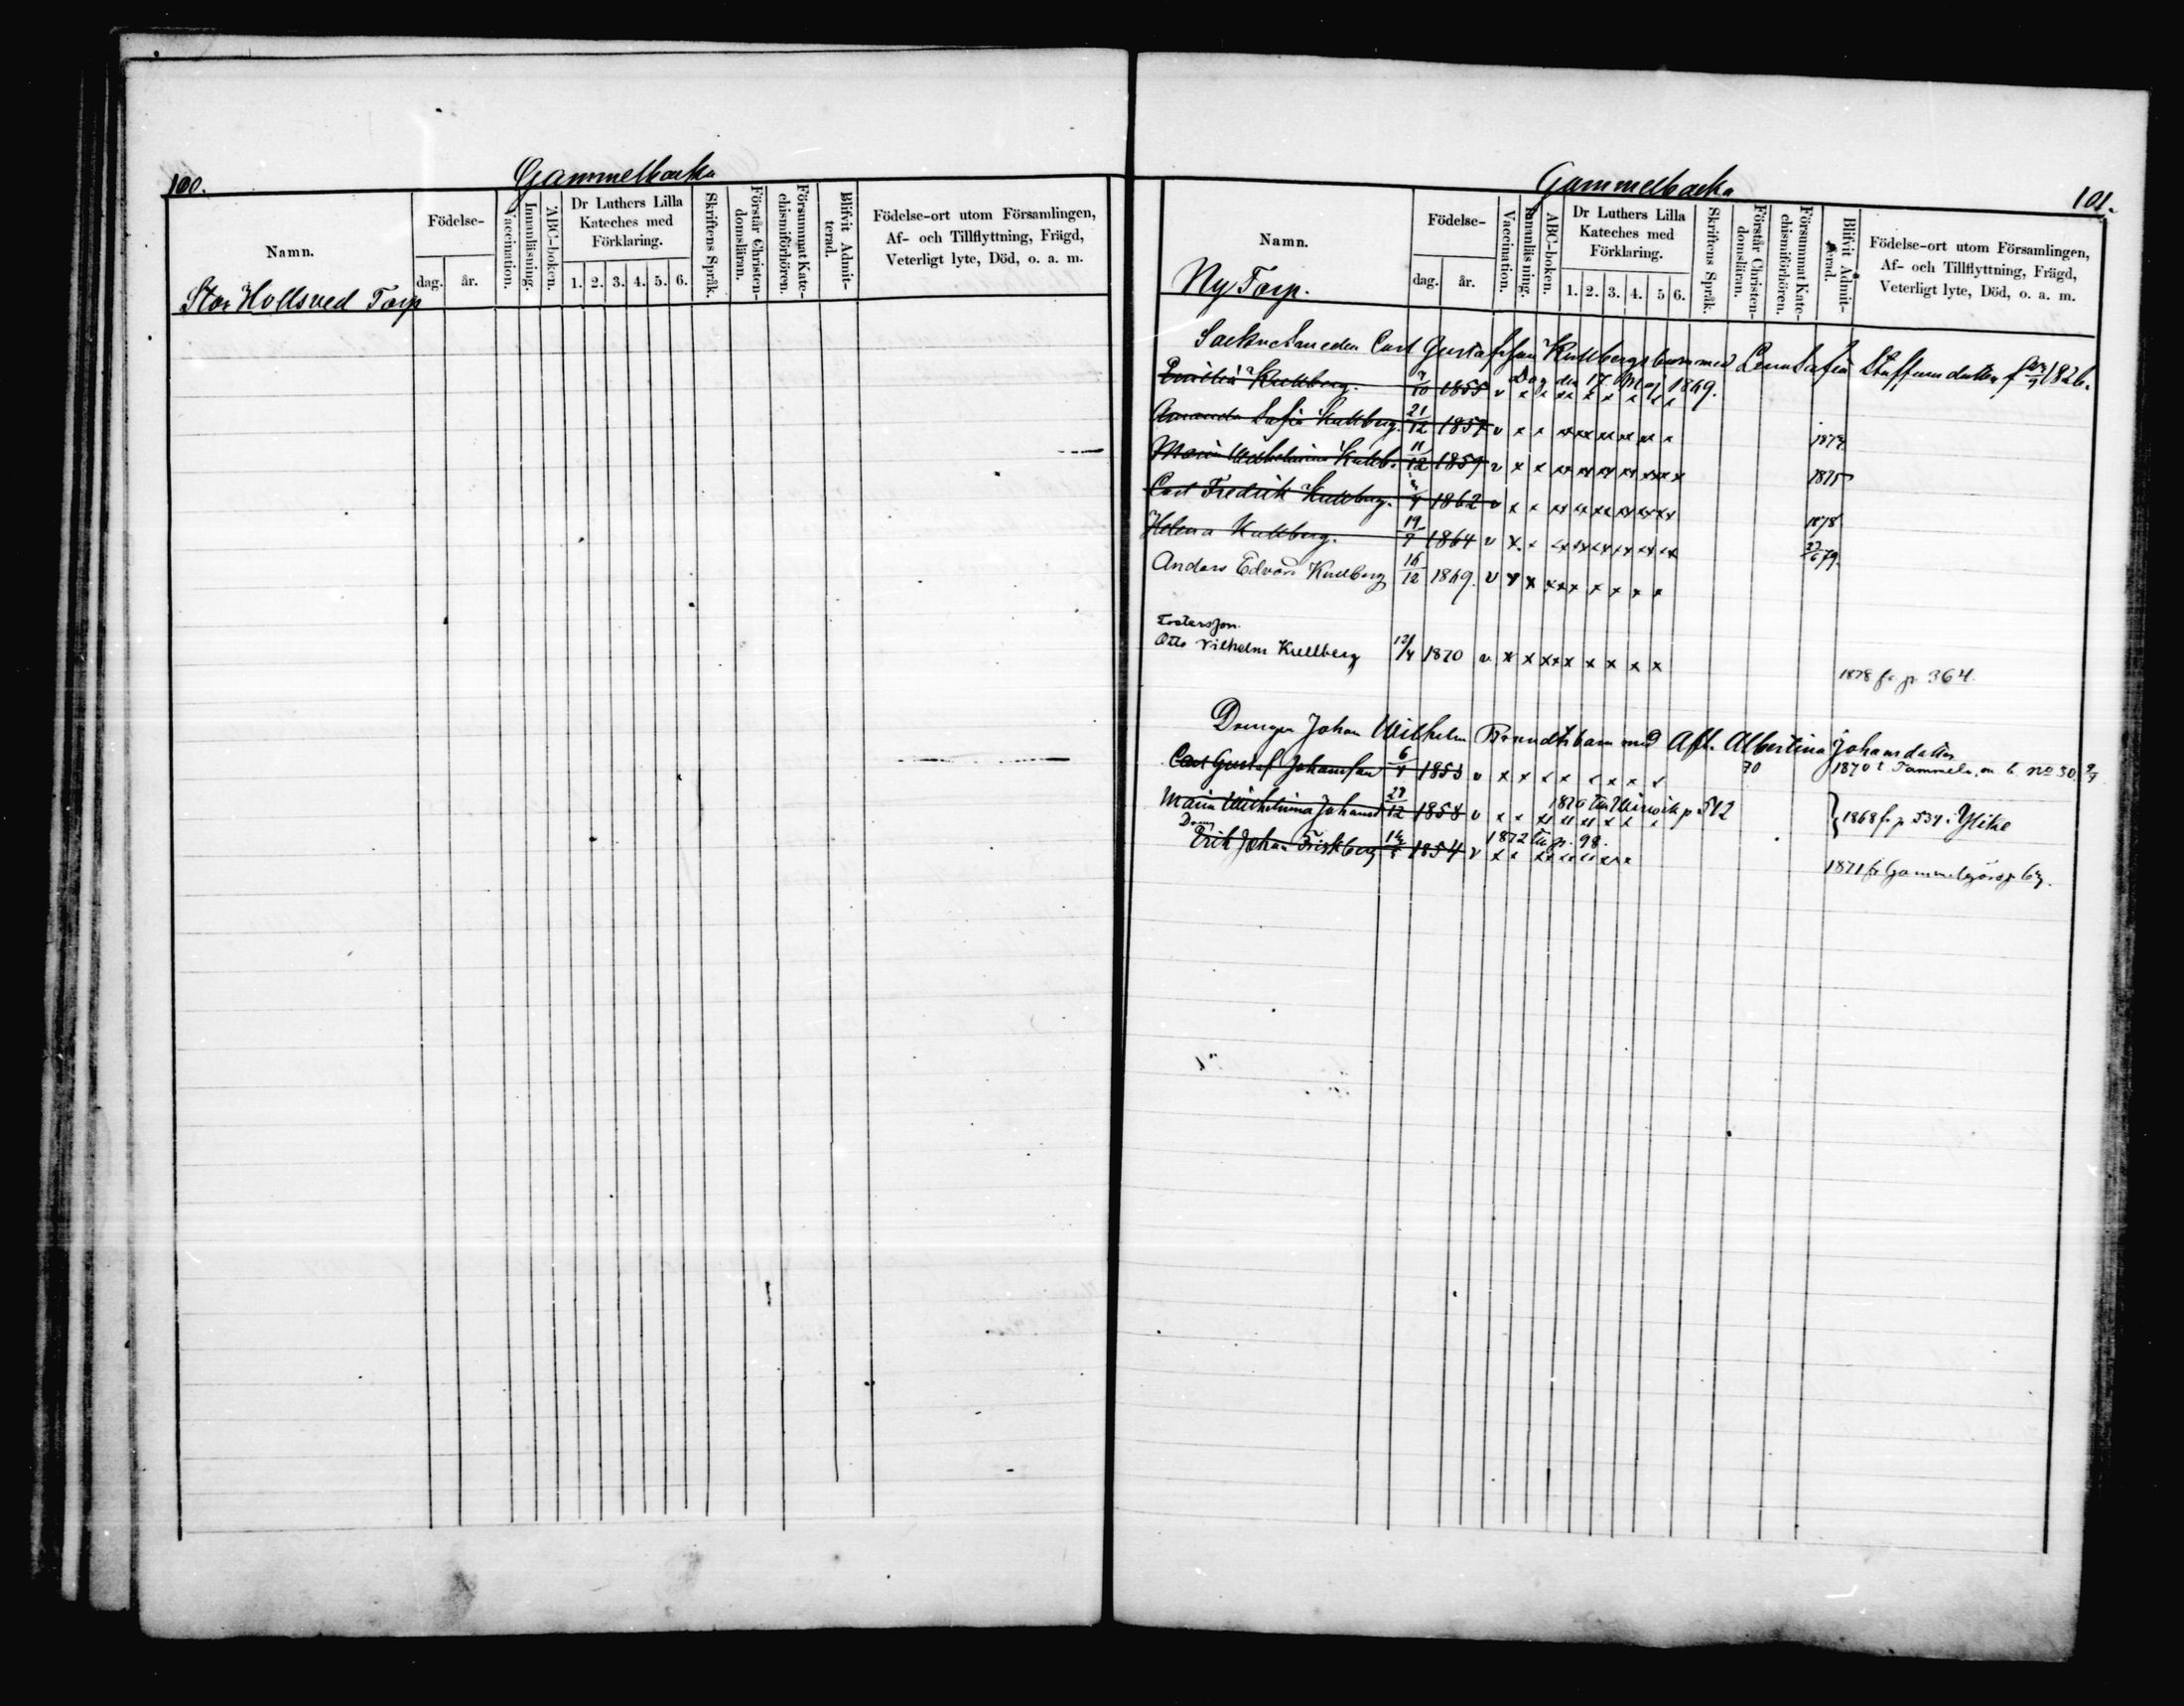 100.
Gammelbacka
Namn.
Födelse-
dag. år.
Vaccination.
Innanläsning.
ABC-boken.
Dr Luthers Lilla
Kateches med
Förklaring.
1. 2. 3. 4. 5. 6.
Skriftens Språk.
Förstår Christen-
domsläran.
Försummat Kate-
chismiförhören.
Blifvit Admit-
terad.
Födelse-ort utom Församlingen,
Af- och Tillflyttning, Frägd,
Veterligt lyte, Död, o. a. m.
Stor Hollsved Torp
Gammelbacka
101.
Namn.
Födelse-
dag. år.
Vaccination.
Innanläsning.
ABC-boken.
Dr Luthers Lilla
Kateches med
Förklaring.
1. 2. 3. 4. 5 6.
Skriftens Språk.
Förstår Christen-
domsläran.
Försummat Kate-
chismiförhören.
Blifvit Admit-
terad.
Födelse-ort utom Församlingen,
Af- och Tillflyttning, Frägd,
Veterligt lyte, Död, o. a. m.
Ny Torp.
Sockneskraedern Carl Gustafsson Kullbergs barn med Lena Sofia Staffansdotter f 1826.
Emilia Kullberg. 1855 v x x xx x x x x x Dog den 17 Maj 1869.
Amanda Sofia Kullberg. 21/12 1857 v x x xx xx xx xx xx x 1874
Maria Wilhelmina Kullb. 11/12 1859 v x x xx xx xx xx xx xx 1875
Carl Fredrik Kullberg. 1862 v x x xx xx xx xx xx xx 1878
Helena Kullberg. 19/7 1864 v x x xx xx xx xx xx xx 79.
Anders Edvard Kullberg 16/12 1869. v x x x x x x x x x
Fosterson.
Otto Vilhelm Kullberg 12/4 1870 v x x x x x x x x x 1878 fr p 364.
Drengen Johan Wilhelm Brandts barn med Afl. Albertina Johansdotter
Carl Gustaf Johansson 6/4 1853 v x x x x x x x x 70 1870 t Tammela, m. b. No 30
Maria Wilhelmina Johansd 1858 v x x 1870 till p 512
1868 fr p 534
Dreng
Erik Johan Friskberg 1854 v x x 1872 till p. 98.
1871 fr Gammelgård p 67.